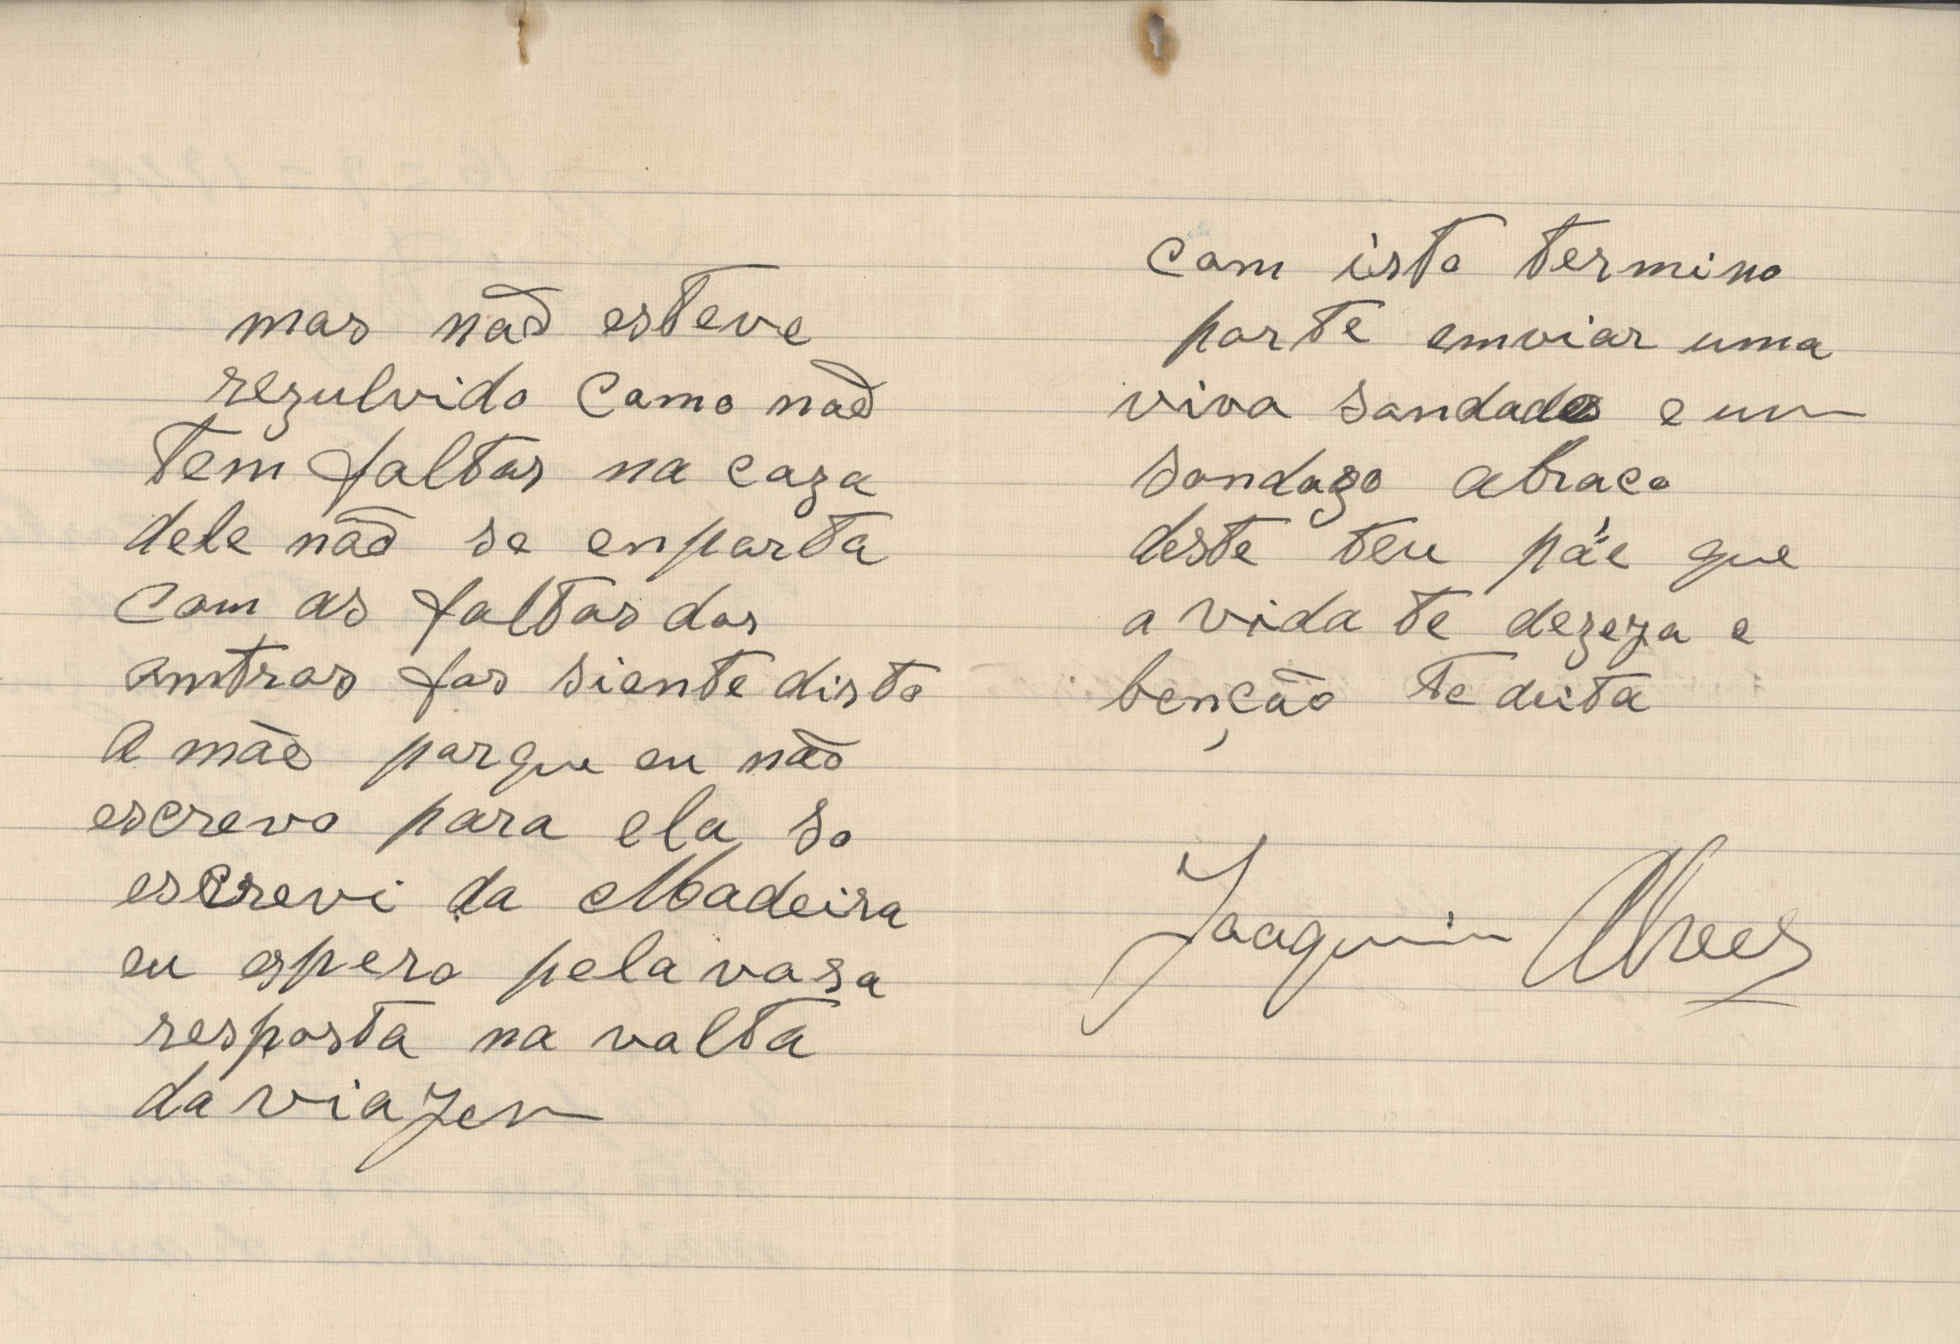 mas não esteve
rezulvido como não
tem faltas na caza
dele não se enporta
com as faltas dos
outros fas siente disto
a mãe porque eu não
escrevo para ela so
escrevi da Madeira
eu espero pela vosa
resposta na volta
da viajen
com isto termino
porte enviar uma
viva saudades e um
saudozo abraco
deste teu páe que
a vida te dezeja e
benção te deita
Joaquim Alves